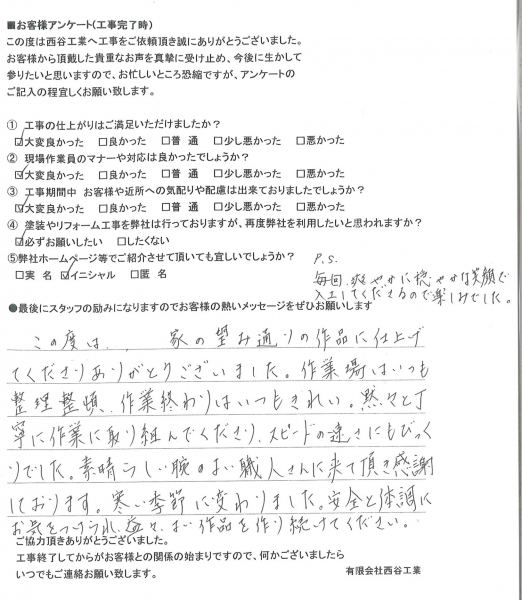 ■お客様アンケート(工事完了時)
この度は西谷工業へ工事をご依頼頂き誠にありがとうございました。
お客様から頂戴した貴重なお声を真摯に受け止め、今後に生かして
参りたいと思いますので、お忙しいところ恐縮ですが、アンケートの
ご記入の程宜しくお願い致します。
① 工事の仕上がりはご満足いただけましたか?
☑大変良かった □良かった □普 通 □少し悪かった □悪かった
② 現場作業員のマナーや対応は良かったでしょうか?
☑大変良かった □良かった □普 通 □少し悪かった □悪かった
③ 工事期間中 お客様や近所への気配りや配慮は出来ておりましたでしょうか?
☑大変良かった □良かった □普 通 □少し悪かった □悪かった
④ 塗装やリフォーム工事を弊社は行っておりますが、再度弊社を利用したいと思われますか?
☑必ずお願いしたい □したくない
⑤弊社ホームページ等でご紹介させて頂いても宜しいでしょうか?
□実 名 ☑イニシャル □匿 名
P.S.
毎回、爽やかに穏やかな笑顔で
入工してくださるので楽しみでした。
●最後にスタッフの励みになりますのでお客様の熱いメッセージをぜひお願いします
この度は、 家の望み通りの作品に仕上げ
てくださりありがとうございました。作業場はいつも
整理整頓、作業終わりはいつもきれい。黙々と丁
寧に作業に取り組んでくださり、スピードの速さにもびっく
りでした。素晴らしい腕のよい職人さんに来て頂き感謝
しております。寒い季節に変わりました。安全と体調に
お気をつけられ、益々、よい作品を作り続けてください。
ご協力頂きありがとうございました。
工事終了してからがお客様との関係の始まりですので、何かございましたら
いつでもご連絡お願い致します。
有限会社西谷工業